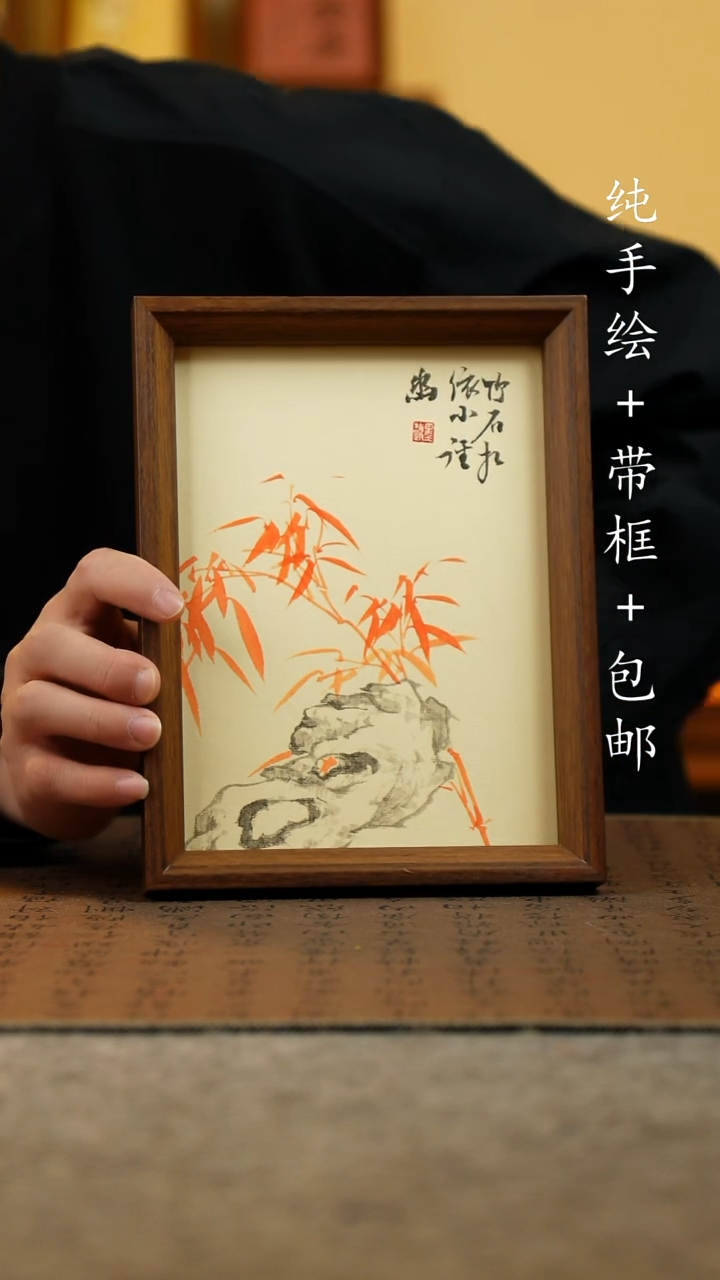 纯手绘+带框+包邮
竹石相
依小径
幽